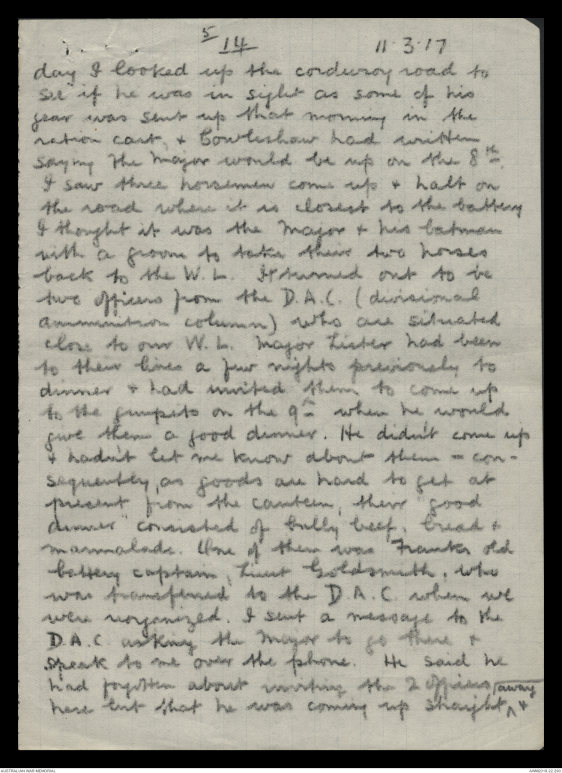 5
14 11.3.17
day I looked up the corduroy road to
see if he was in sight as some of his
gear was sent up that morning in the
ration cart, & Cowlishaw had written
saying the Major would be up on the 8th.
I saw three horsemen come up & halt on
the road where it is closest to the battery
I thought it was the Major & his batman
with a groom to take their two horses
back to the W.L. It turned out to be
two officers from the D.A.C. (divisional
ammunition column) who are situated
close to our W.L. Major Lister had been
to their lines a few nights previously to
dinner & had invited them to come up
to the gunpits on the 9th when he would
give them a good dinner. He didn't come up
& hadn't let me know about them - con-
sequently, as goods are hard to get at
present from the canteen, their "good
dinner" consisted of bully beef, bread &
marmalade. One of them was Franks old
battery captain, Lieut Goldsmith, who
was transferred to the D.A.C. when we
were reorganized. I sent a message to the
D.A.C. asking the Major to go there &
speak to me over the phone. He said he
had forgotten about inviting the 2 officers
here but that he was coming up straight ^away &
AUSTRALIAN WAR MEMORIAL